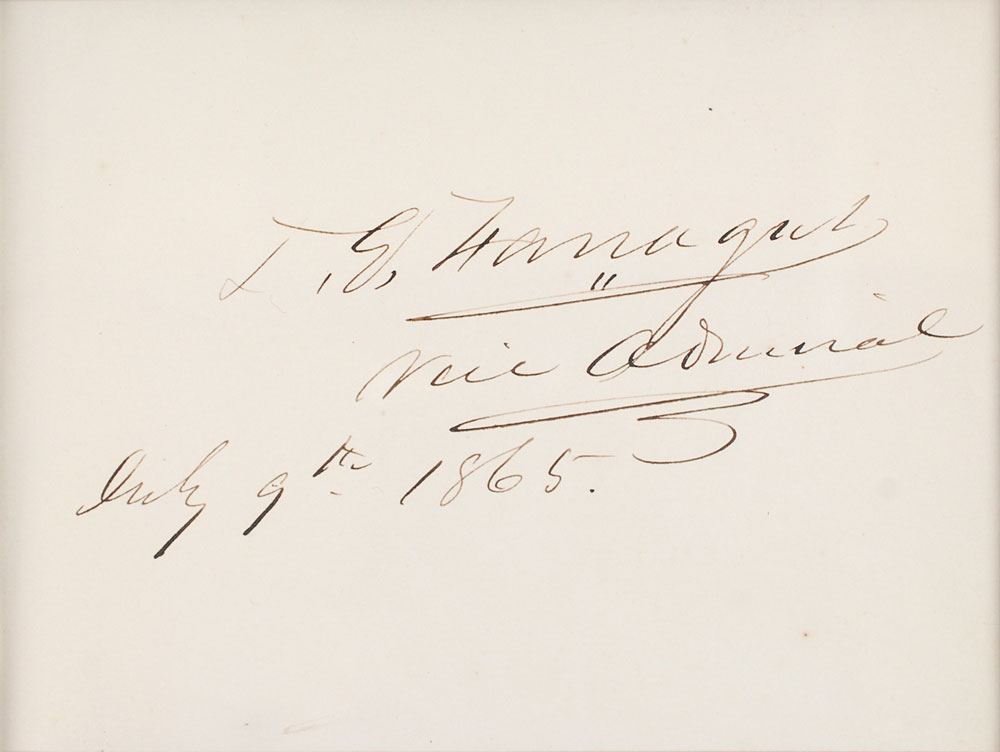 D. G. Farragut
Vice Admiral
July 9th 1865.